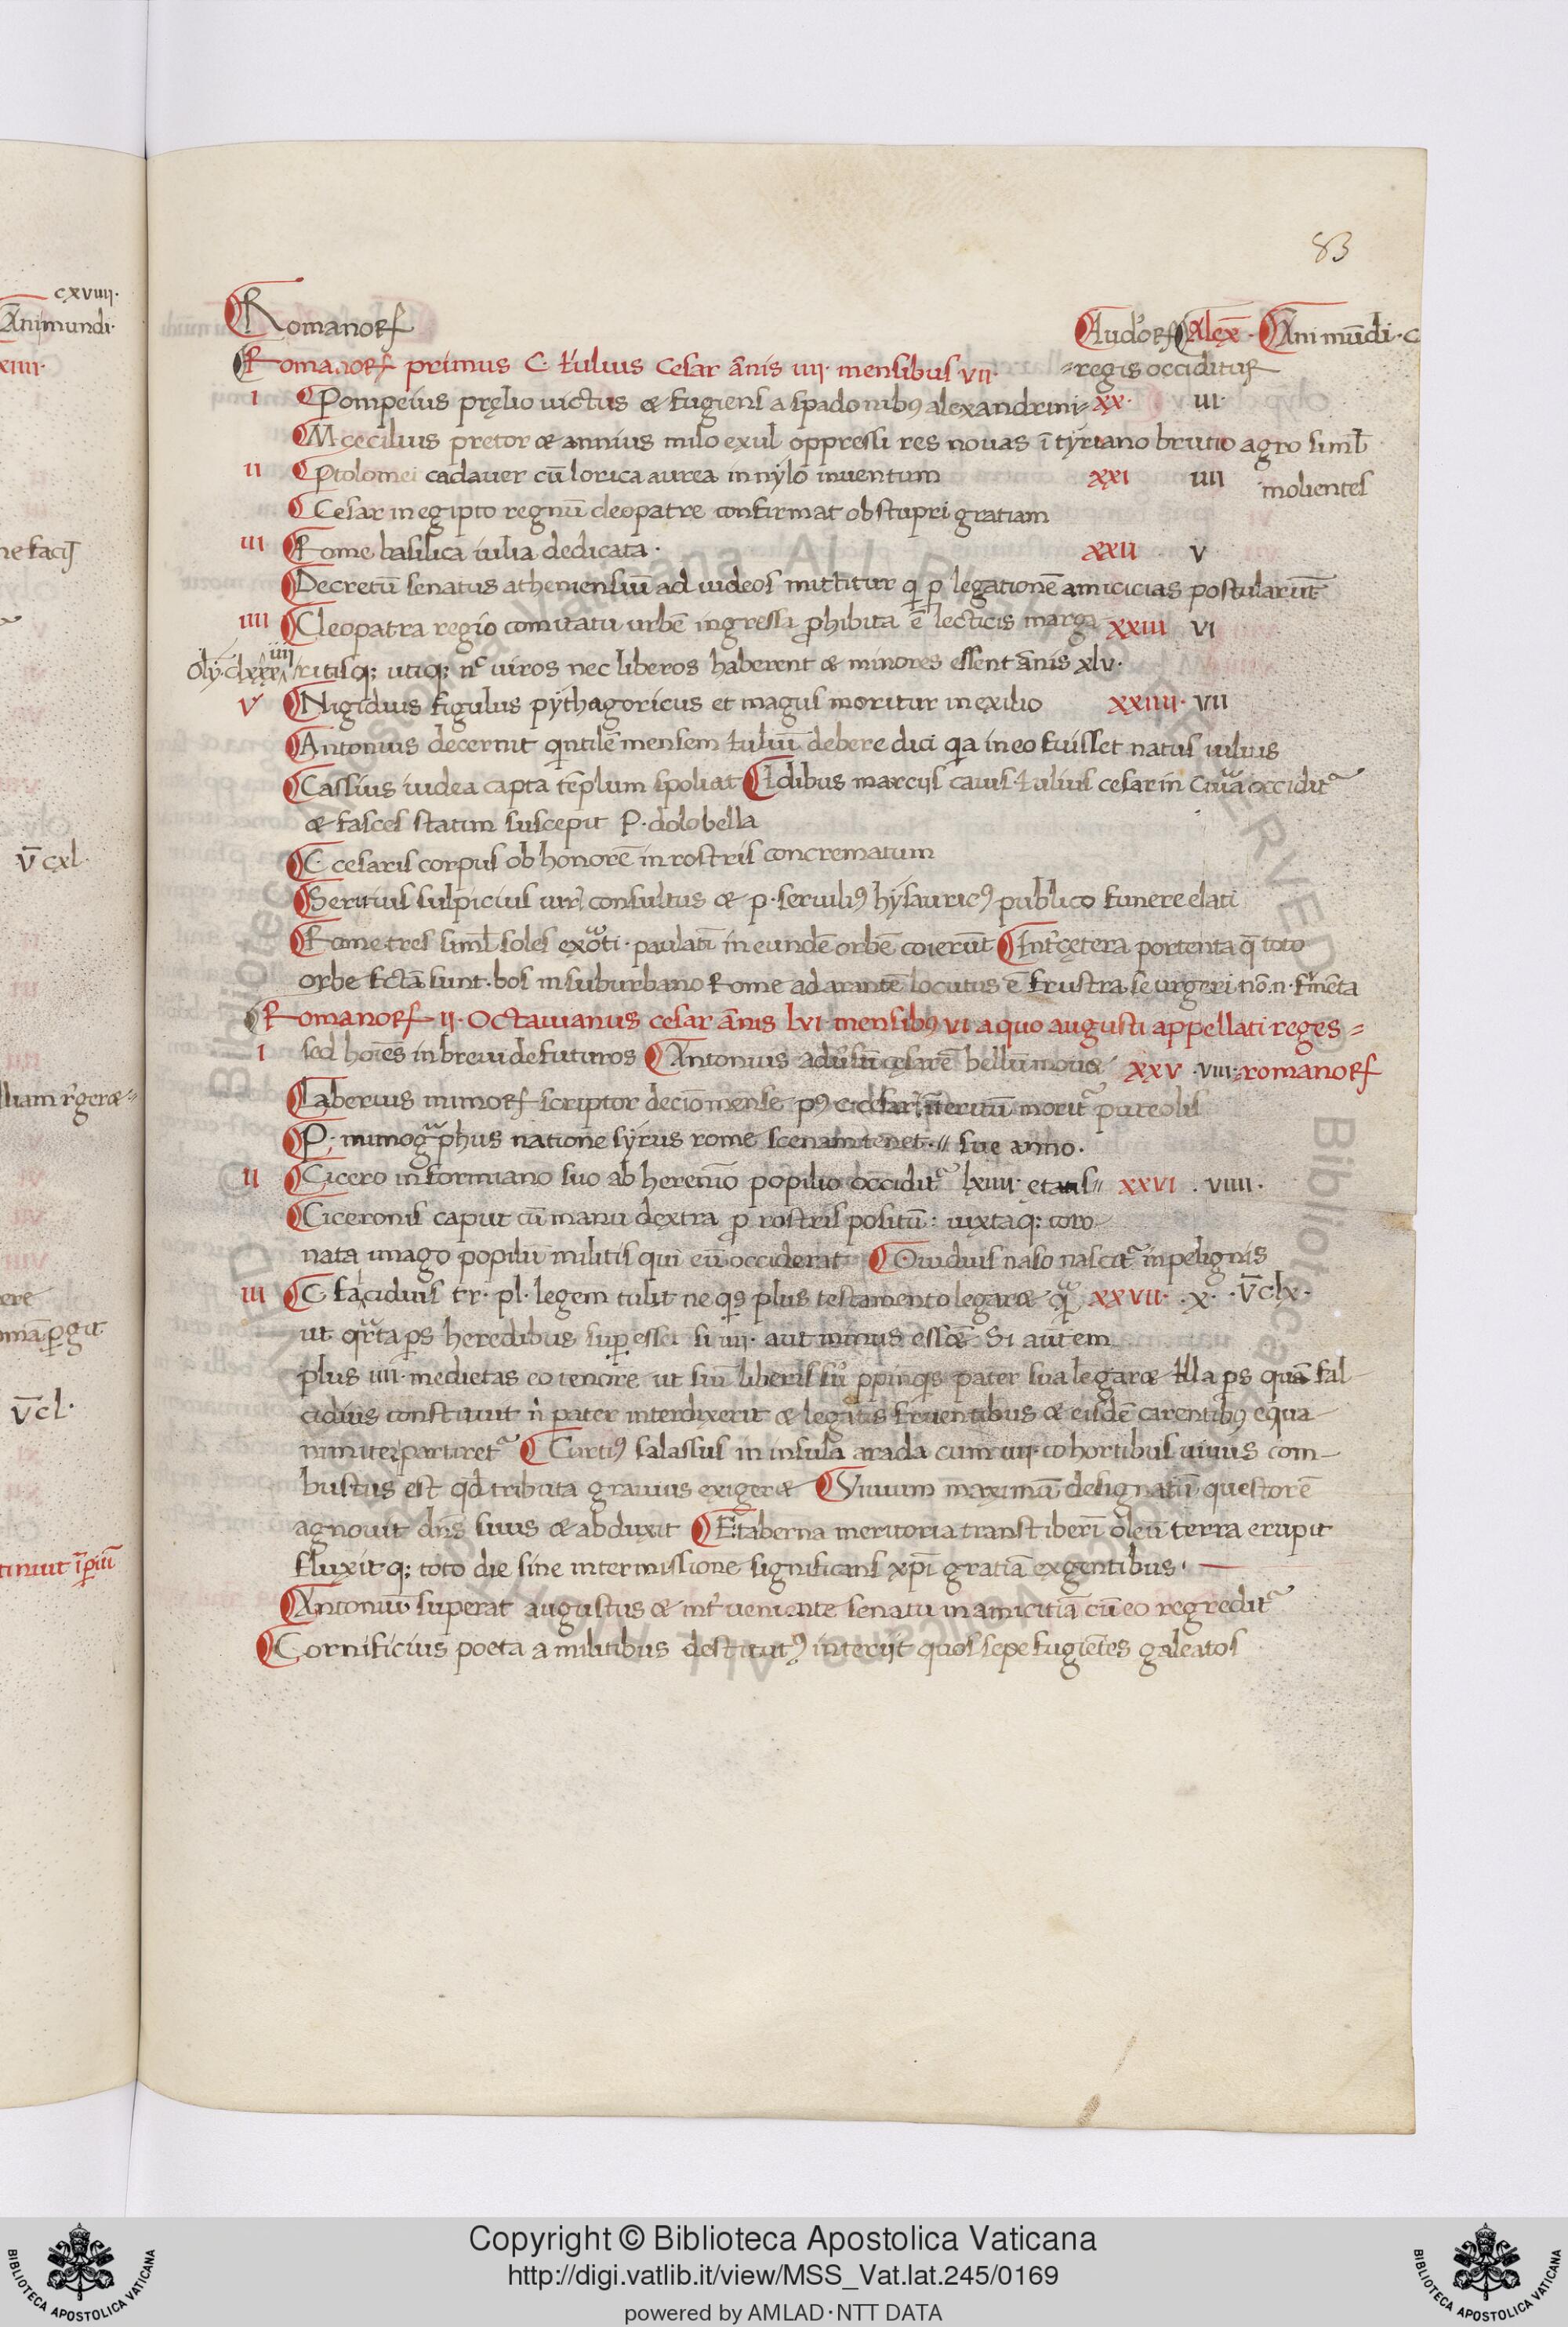 cxviiii·
Ãni mundi·
xiiii·
ne facit
v̄ cxl·
v̄cl·
83
Romanorꝝ
Iudeorꝝ Alex̄· Ani mūdi·c
Romanorꝝ primus C· Iulius cesar ānis iiii· mensibus vii·
regis occiditur
i Pompeius pręlio uictus & fugiens a spadonibꝰ alexandrini= xx· iii·
M cecilius pretor & annius milo exul oppressi res nouas ī tyriano brutio agro siml̄
molientes
ii Ptolomei cadauer cū lorica aurea in nylo inuentum xxi iiii
Cesar in egipto regnū cleopatre confirmat ob stupri gratiam
iii Rome basilica iulia dedicata· xxii v
Decretū senatus atheniensiū ad iudeos mittitur q̇ ꝑ legationē amicicias postularūt
iiii Cleopatra regio comitatu urbē ingressa ꝓhibita ē lecticis marga xxiii vi
Oly·clxxx iiii ritisq; utiq; nͨ uiros nec liberos haberent & minores essent ānis xlv·
v Nigidius figulus pythagoricus et magus moritur in exilio xxiiii· vii
Antonius decernit qͥntilē mensem Iuliū debere dici qͥa in eo fuisset natus iulius
Cassius iudea capta tēplum spoliat Idibus marcijs caius Iulius cesar in curia occidit᷑
& fasces statim suscepit P· dolobella
C cesaris corpus ob honorē in rostris concrematum
Seruius sulpicius iur̄ consultus & p· seruiliꝰ hysauricꝰ publico funere elati
Rome tres siml̄ soles exorti· paulatī in eundē orbē coierūt Int̄ cętera portenta q̄ toto
orbe fctā sunt· bos in suburbano Rome ad arantē locutus ē frustra se urgeri· nō·n· frͫēta
Romanorꝝ ii· Octauianus cesar ānis lvi mensibꝰ vi a quo augusti appellati reges=
i sed hoīes in breui defuturos Antonius aduͬsū cęsarē bellū mou& xxv ·viii· =romanorꝝ
Laberius mimorꝝ scriptor deciō mense pꝰ c· cesar᷑ interitū morit᷑ puteolis
P· mimogͣphus natione syrus rome scenam tenet·= sue anno·
ii Cicero in formiano suo ab herenīo popilio occidit᷑ lxiiii· etatis= xxvi ·viiii·
Ciceronis caput cū manu dextra ꝓ rostris positū: iuxtaq; coro
nata imago popilii militis qui eū occiderat Ouidius naso nascit᷑ in pelignis
iii C falcidius tr· pl· legem tulit ne qͥs plus testamento legar& qͣ xxvii· ·x· ·v̄clx·
ut qͣrta ꝑs heredibus suꝑ esset si iiii· aut minus esset Si autem
plus iiii· medietas eo tenore ut suū liberis suͥ ꝓpinqͥs pater sua legar& Illa ꝑs quā fal
cidius constituit nͥ pater interdixerit & legatis fruentibus & eisdē carentibꝰ equa
nimiter partiret᷑ Curtiꝰ salassus in insula arada cum iiii· cohortibus uiuus com
bustus est qd̄ tributa grauius exiger& Uiuum maximū designatū questorē
agnouit dn̄s suus & abduxit E taberna meritoria trans tiberī oleū terra erupit
fluxitq; toto die sine intermissione significans xp̄i gratiā ex gentibus·
Antoniū superat augustus & int̄ueniente senatu in amicitiā cū eo regredit᷑
Cornificius poeta a militibus destitutꝰ interijt quos sepe fugiētes galeatos
Copyright © Biblioteca Apostolica Vaticana
http://digi.vatlib.it/view/MSS_Vat.lat.245/0169
powered by AMLAD·NTT DATA
BIBLIOTECA APOSTOLICA VATICANA
BIBLIOTECA APOSTOLICA VATICANA